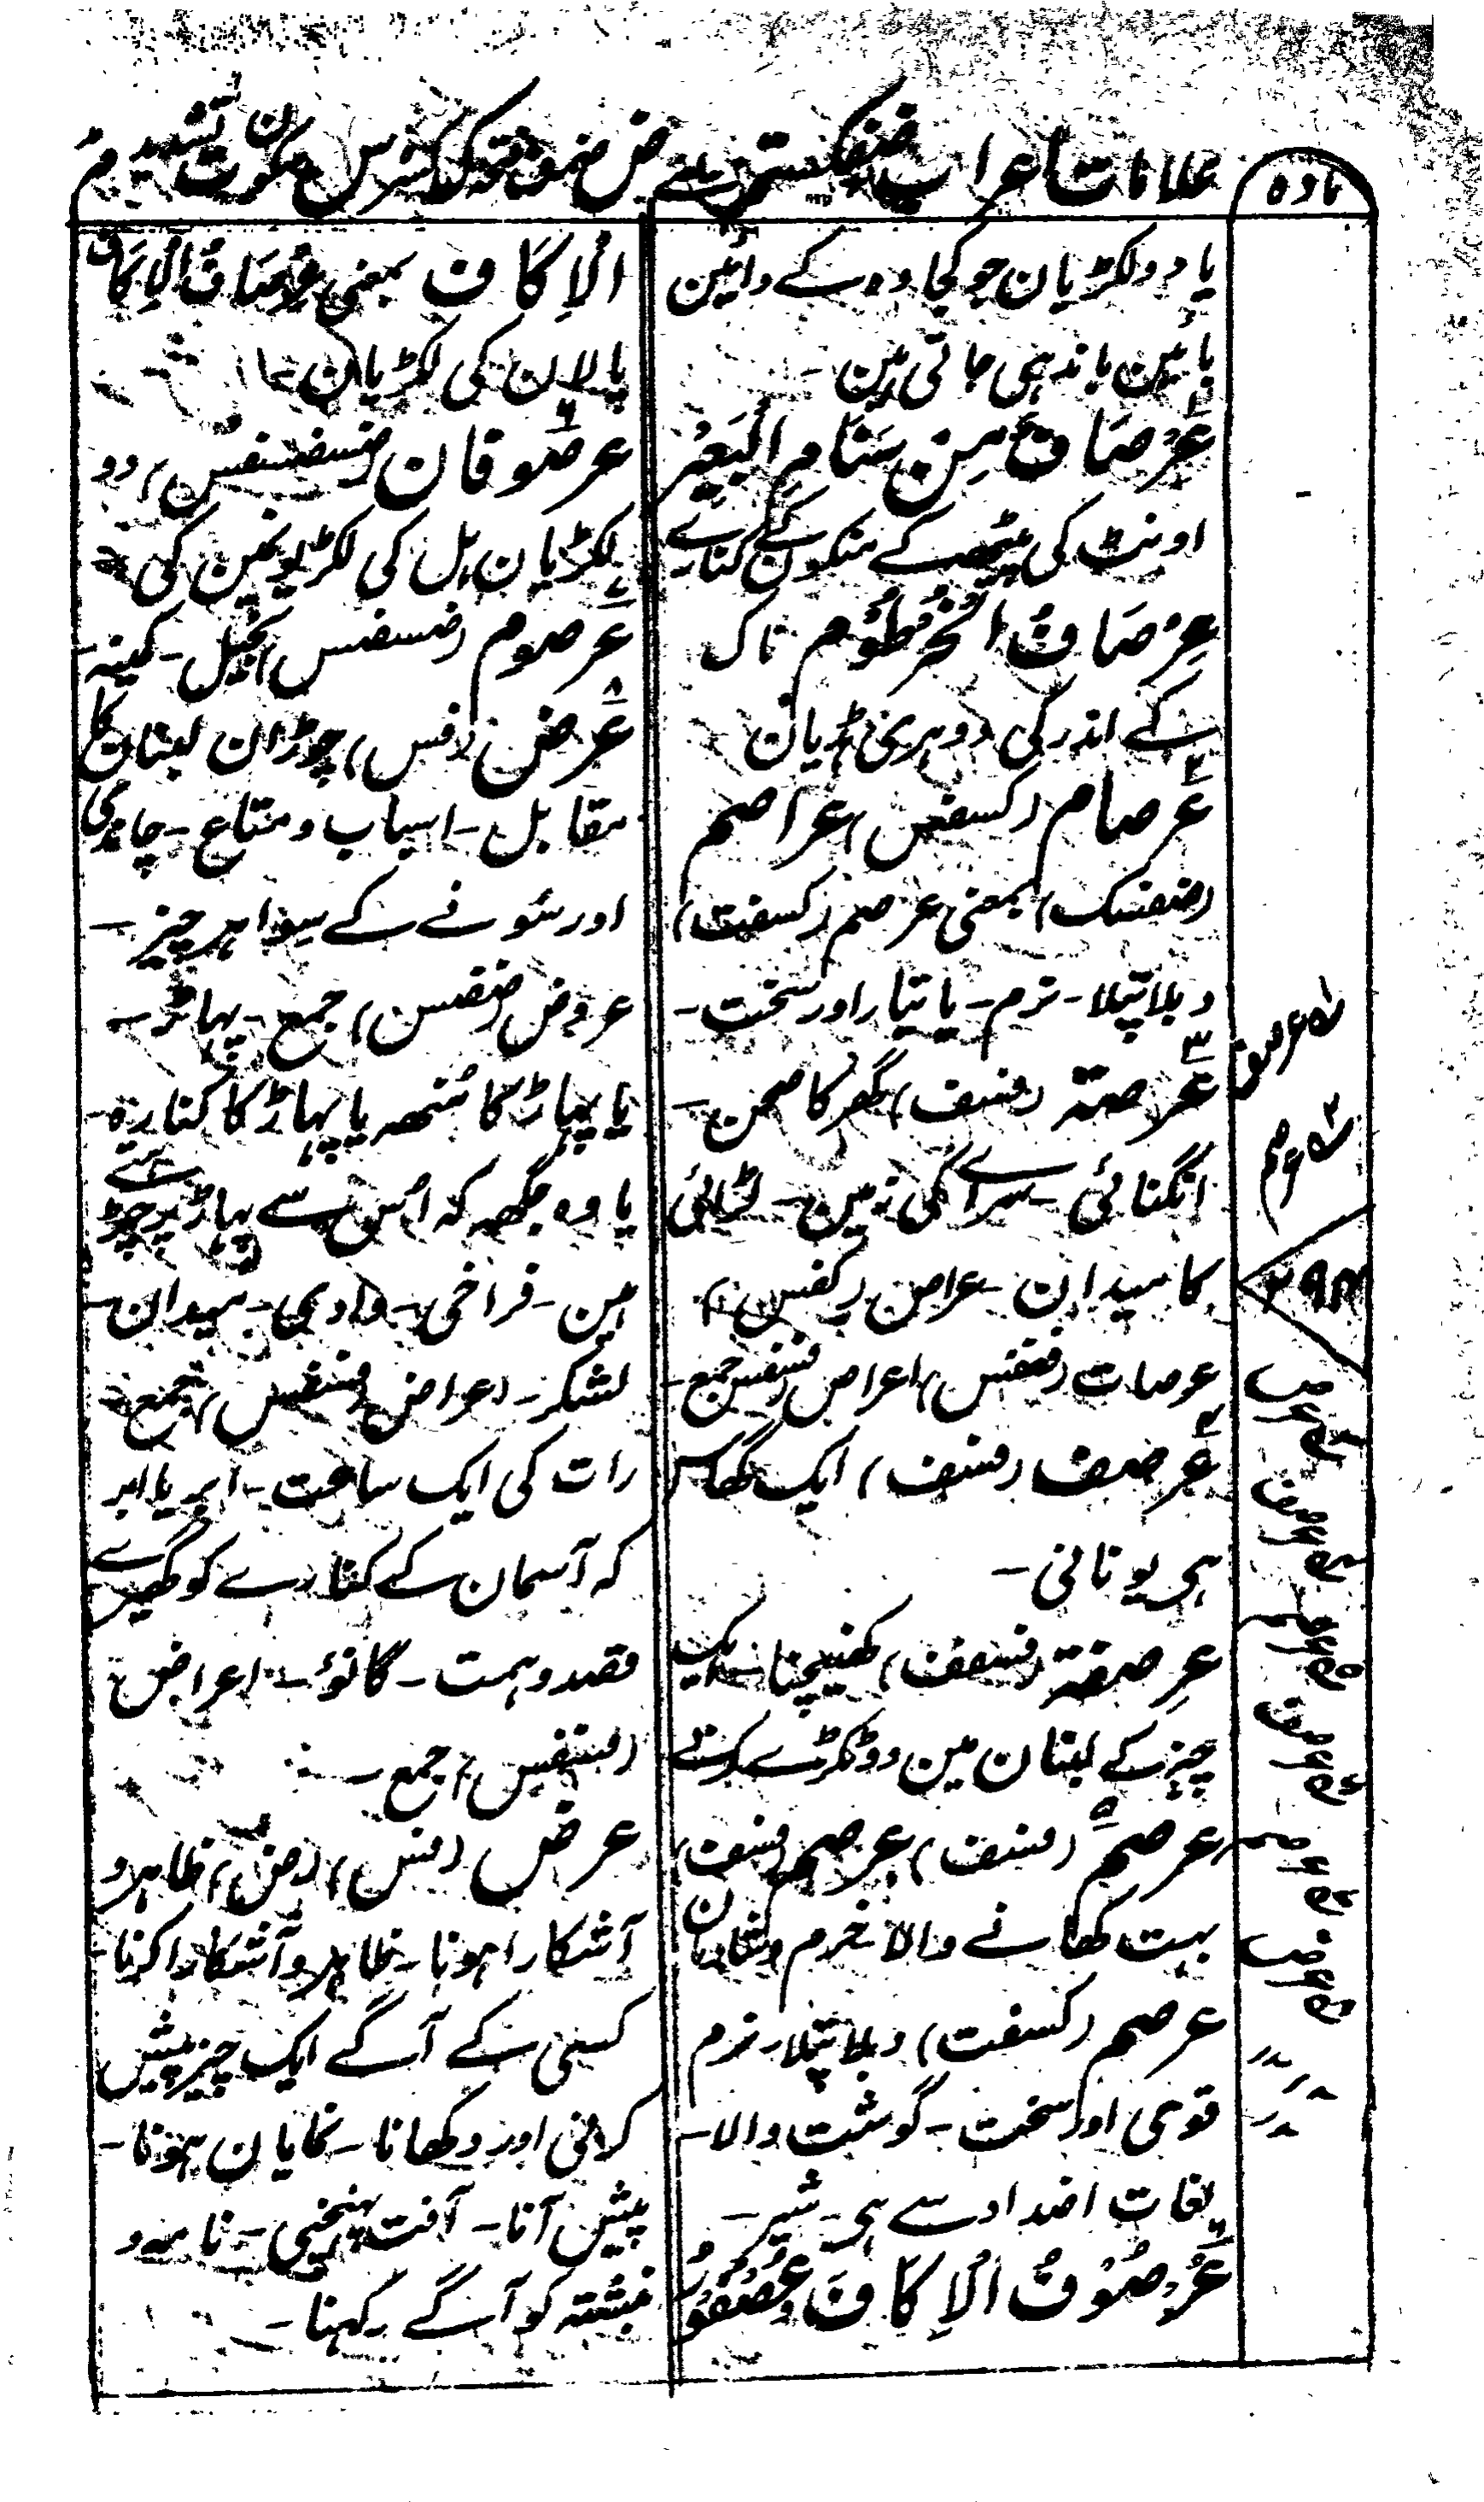 مادہ
علامات اعراب
یا دو لکڑیان جو کجاوہ کے دائین
بائین باندہی جاتی ہین -
عِرْصَافٌ مِن سَنَامِ الْبَعِیْر
اونٹ کی پیٹھہ کے منکون کے کنارے
عِرْصَافُ الْخُرْطُوْم ناک
کے اندر کی دوہری ہڈیان
عرصام (کسفس) عراصم
(ضفسک) بمعنی عرصم (کسفت)
دبلا پتلا - نرم - یا تیار اور سخت -
عَرصة (فسف) گھر کا صحن -
انگنائی - سراے کی زمین - لڑائی
کا میدان - عراص (کفس)
عرصات (ففس) اعراص (فسفس) جمع -
عرصف (فسف) ایک گھاس
ہی یونانی -
عرصفة (فسفف) کھنیچنا - ایک
چیز کے لبنان مین دو ٹکڑے کرنے
عرصم (فسف) عرصم (فسف)
بہت کھانے والا خرم وشادان
عرصم (کسفت) دبلا پتلا - نرم
قوی اور سخت - گوشت والا -
لغات اضداد سے ہی - شیر -
عُرْصُوْفُ الْاِکَاف وَعُصْفُوْرُ
الْاِکَاف بمعنی عِرْصَافُ الْاِکَاف
پالان کی لکڑیان -
عرصوفان (ضسضسفس) دو
لکڑیان ہل کی لکڑیونمین کی
عرصوم (ضسضس) بخیل - کمینہ -
عَرض (فس) چوڑان لبنان کا
مقابل - اسباب ومتاع - چاندی
اور سونے کے سوا ہر چیز -
عروض (ضضس) جمع - پہاڑ -
یا پہاڑ کا منھہ یا پہاڑ کا کنارہ -
یا وہ جگھہ کہ اس سے پہاڑ پر چڑھتے
ہین - فراخی - وادی - میدان -
لشکر - اعراض (فسفس) جمع
رات کی ایک ساعت - ابر یا ابر
کہ آسمان کے کنارے کو گھیرے
قصد وہمت - گانؤ - اعراض
(فسفس) جمع -
عرض (فس) (ض) ظاہر و
آشکارا ہونا - ظاہر وآشکارا کرنا
کسی کے آگے ایک چیز پیش
کرنی اور دکھانا - نمایان ہونا -
پیش آنا - آفت پہنچنی - نامہ و
نبشتہ کو آگے رکھنا -